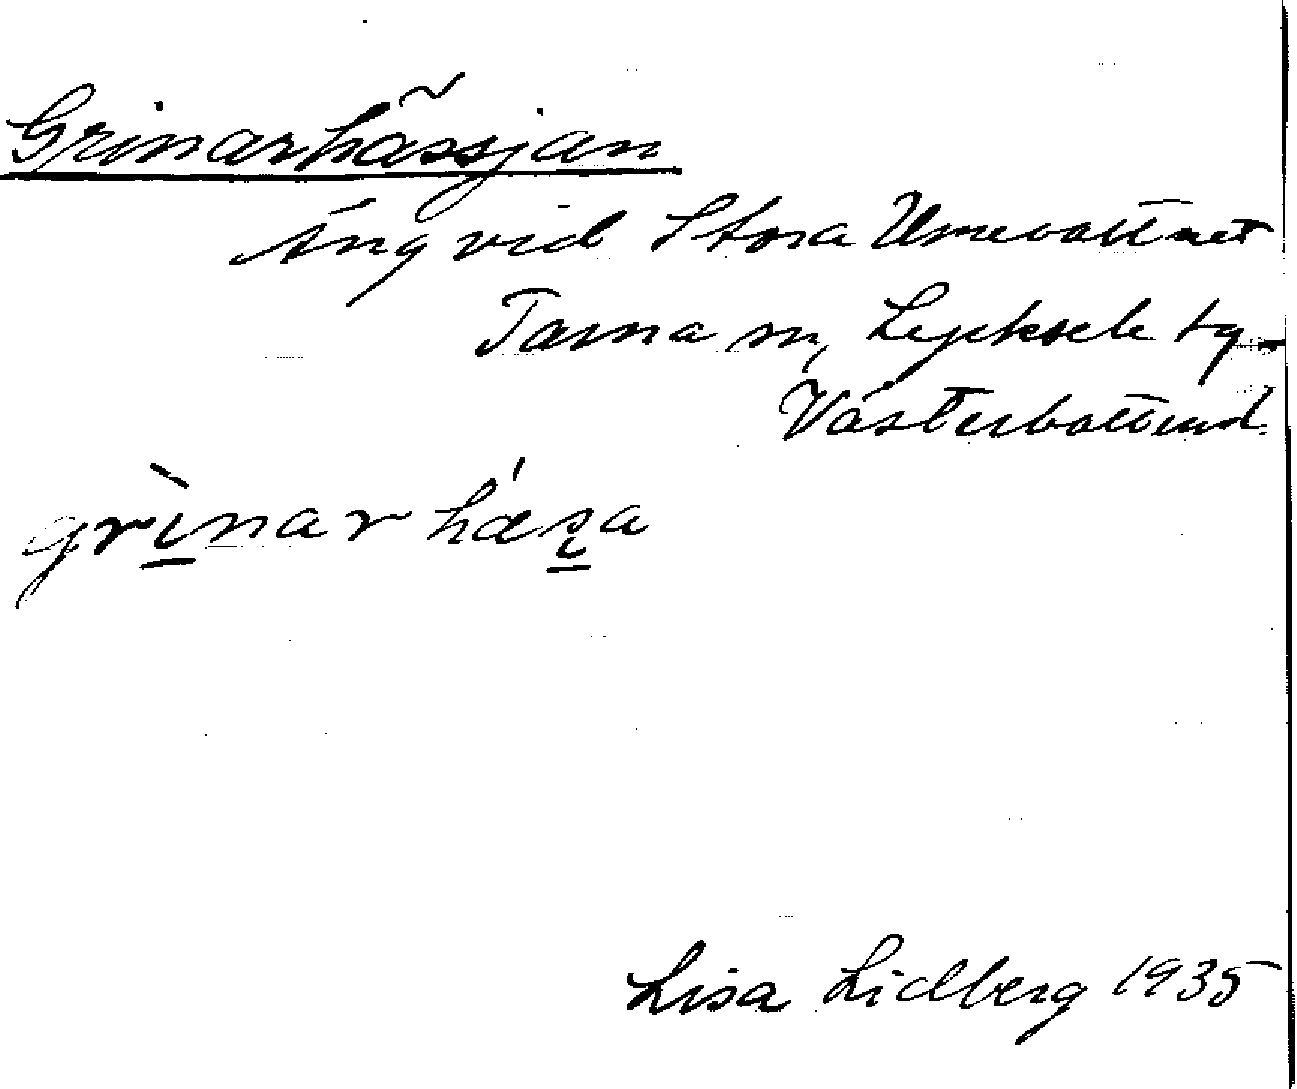 Grinarhässjan
Äng vid Stora Umevattnet
Tärna sn, Lycksele tg
Västerbottens l.
grìnar hǽʂa
Lisa Lidberg 1935